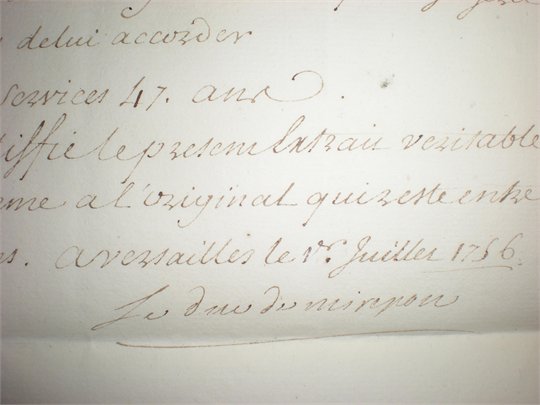 delui accorder
services 47. ans.
tiffie le present Extrait veritable
me a l'original qui reste entre
s. a versailles le 1er. Juillet 1756
Le duc de mirepoix